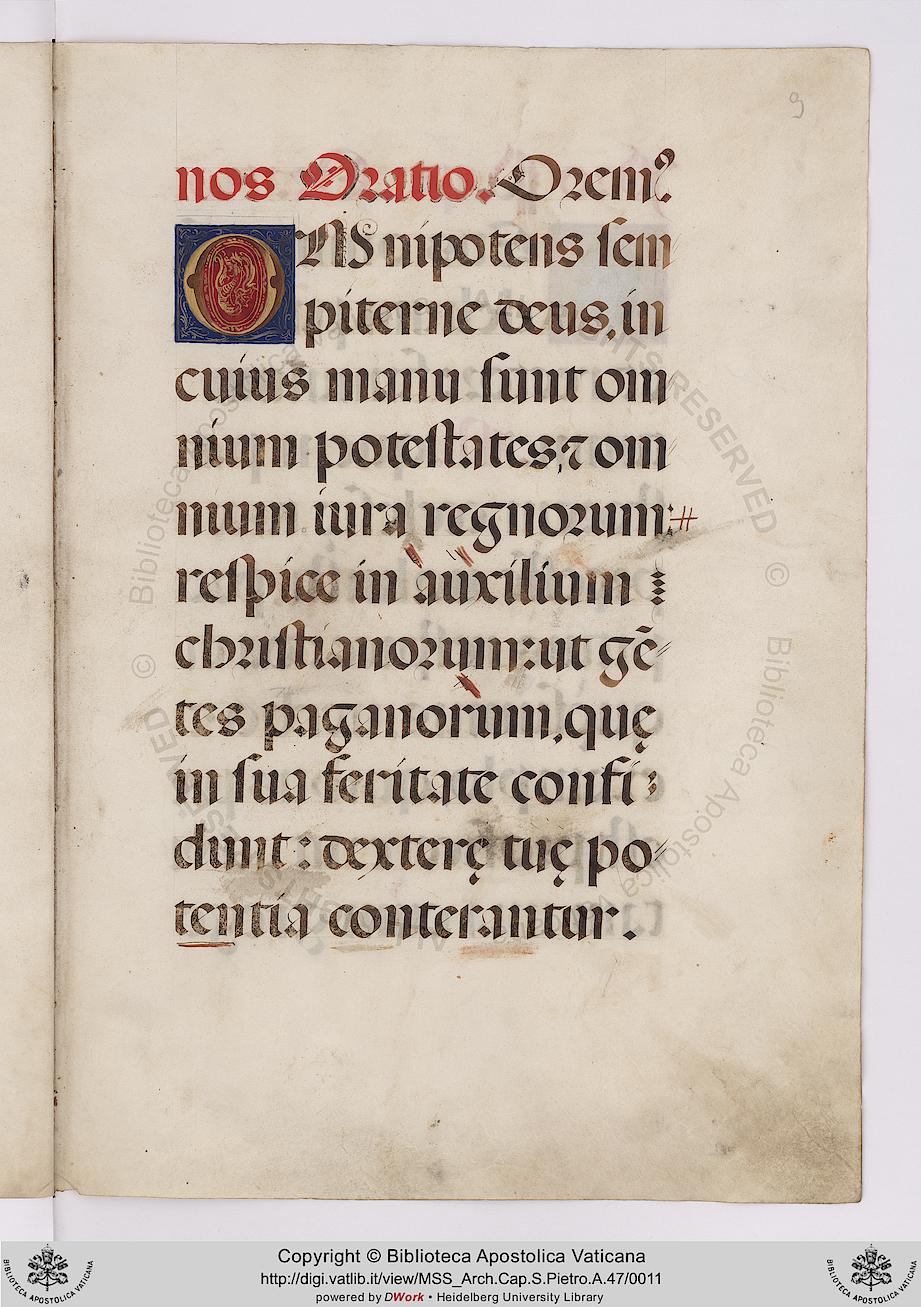 9
nos Oratio. Orem⁹.
OMnipotens sem
piterne deus, in
cuius manu sunt om
nium potestates, ⁊ om
nium iura regnorum:
respice in auxilium
christianorum: ut gē
tes paganorum, quę
in sua feritate confi
dunt: dexterę tuę po
tentia conterantur.
Copyright © Biblioteca Apostolica Vaticana
http://digi.vatlib.it/view/MSS_Arch.Cap.S.Pietro.A.47/0011
powered by DWork • Heidelberg University Library
BIBLIOTECA APOSTOLICA VATICANA
BIBLIOTECA APOSTOLICA VATICANA